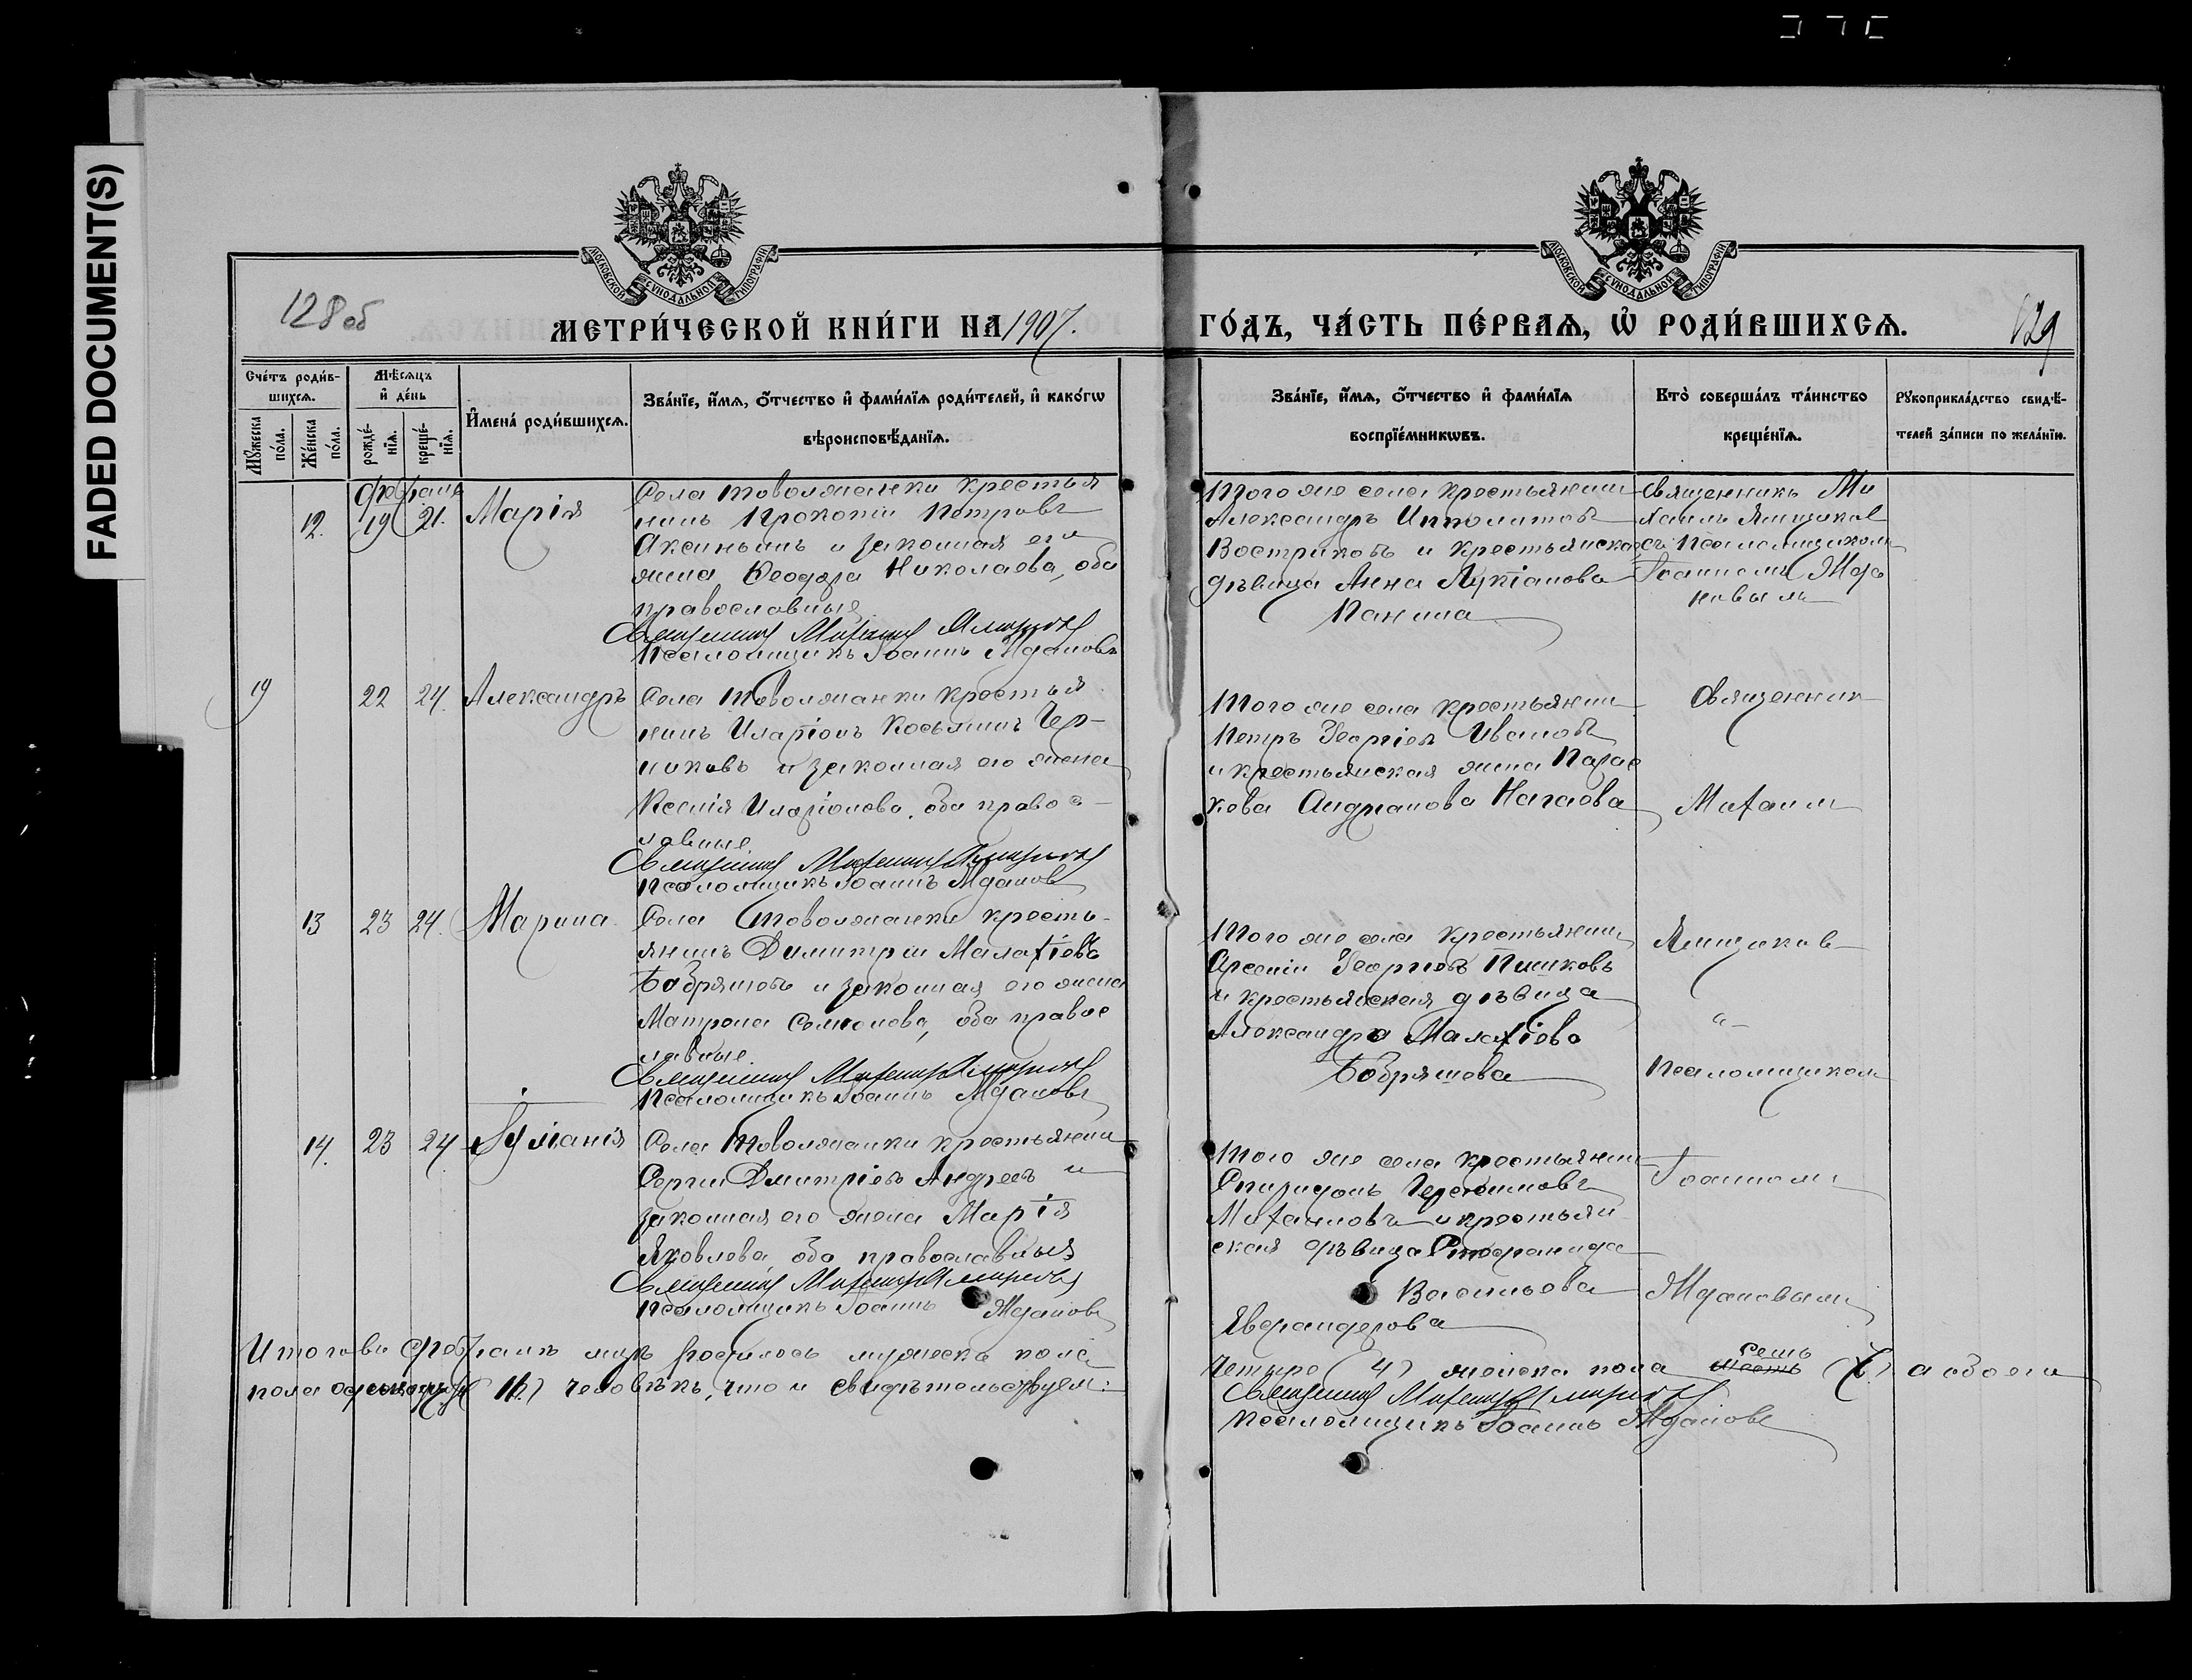 FADED DOCUMENT(S)
МОСКОВСКОЙ СѴНОДАЛЬНОЙ ТИПОГРАФІИ
МОСКОВСКОЙ СѴНОДАЛЬНОЙ ТИПОГРАФІИ
128 об
МЕТРИ́ЧЕСКОЙ КНИ́ГИ НА 1907. ГО́ДЪ, ЧА́СТЬ ПЕ́РВАѦ, Ѡ҆ РОДИ́ВШИХСѦ.
129
Сче́тъ роди́в-
шихсѧ.
Мꙋ́жеска по́ла.
Же́нска по́ла.
Мѣ́сѧцъ
и҆ де́нь
рожде́-нїѧ.
креще́-нїѧ.
И҆мена̀ роди́вшихсѧ.
Зва́нїе, и҆́мѧ, ѻ҆́тчество и҆ фами́лїѧ роди́телей, и҆ како́гѡ
вѣроисповѣ́данїѧ.
Зва́нїе, и҆́мѧ, ѻ҆́тчество и҆ фами́лїѧ
воспрїе́мникѡвъ.
Кто̀ соверша́лъ та́инство
креще́нїѧ.
Рꙋкоприкла́дство свидѣ́-
телей за́писи по жела́нїю.
Февраля
12. 19 21. Марія
Села Товолжанки крестья
нинъ Прокопій Петровъ
Аксиньинъ и законная его
жена Ѳеодора Николаева, оба
православные
Священникъ Михаилъ Ямщиковъ
Псаломщикъ Іоаннъ Ждановъ
Того же села крестьянин
Александръ Ипполитовъ
Востриковъ и крестьянская
дѣвица Анна Лукіанова
Панина
Священникъ Ми
хаилъ Ямщиков
съ Псаломщиком
Іоанномъ Жда
новымъ
19 22 24. Александръ
Села Товолжанки крестья
нинъ Иларіонъ Косьминъ Чер-
никовъ и законная его жена
Ксенія Иларіонова, оба правос-
лавные
Священникъ Михаилъ Ямщиковъ
Псаломщикъ Іоаннъ Ждановъ
Того же села крестьянин
Петръ Георгіевъ Ивановъ
и крестьянская жена Парас
кева Андріанова Нагаева
Священник
Михаил
13 23 24. Марина
Села Товолжанки кресть-
янинъ Димитрій Малахіевъ
Бобряшовъ и законная его жена
Матрона Семионова, оба правос
лавные.
Священникъ Михаилъ Ямщиковъ
Псаломщикъ Іоаннъ Ждановъ
Того же села крестьянин
Арсеній Георгіевъ Пишковъ
и крестьянская дѣвица
Александра Малахіева
Бобряшова
Ямщиков
"-
Псаломщиком
14. 23 24 Іуліанія
Села Товолжанки крестьянин
Сергій Дмитріевъ Андреев и
законная его жена Марія
Яковлева, оба православныя
Священникъ Михаилъ Ямщиковъ
Псаломщикъ Іоаннъ Ждановъ
Того же села крестьянин
Спиридонъ Герасимовъ
Михаиловъ и крестьян
ская дѣвица
Васильева
Іоанномъ
Ждановымъ
Итого въ Февралѣ мцѣ родилось мужеска пола Четыре (4) женска пола семь (7) а обоего
пола одинадцать (11) человѣкъ, что и свидѣтельствуем:
Священникъ Михаилъ Ямщиковъ
Псаломщикъ Іоаннъ Ждановъ